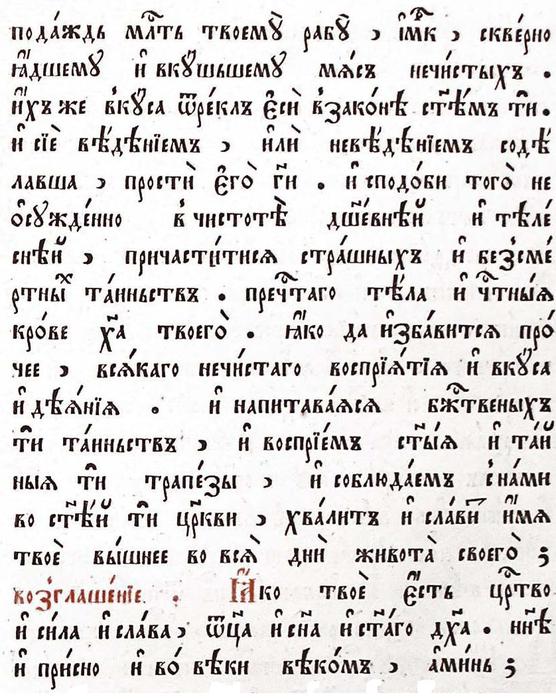 пода́ждь мл҃ть твоемꙋ̀ рабꙋ̀ , і҆мⷬ҇к , скве́рно
ꙗ҆́дшемꙋ и҆ вкꙋ́шьшемꙋ мѧ́съ нечи́стыхъ .
и҆́хъ же вкꙋ́са ѿре́клъ є҆сѝ в̾зако́нѣ ст҃ѣ́мъ тѝ .
и҆ сїѐ вѣ́дѣнїемъ , и҆лѝ невѣ́дѣнїемъ содѣ́
лавша , простѝ є҆гѡ̀ гд҇и . и҆ сподо́би того̀ не
ѡ҆сꙋжде́нно в чистотѣ̀ дш҃е́внѣй и҆ тѣле́
снѣ́й , причасти́тисѧ стра́шныхъ и҆ без̾сме́
ртныⷯ та́иньствъ . преч҇таго тѣ́ла и҆ ч҇тны́ѧ
кро́ве хр҇та̀ твоего̀ . ꙗ҆́ко да и҆зба́витсѧ про́
чее , всѧ́каго нечи́стаго воспрїѧ́тїѧ и҆ вкꙋ́са
и҆ дѣѧ́нїѧ . и҆ напита́ваѧсѧ бж҇твеныхъ
тѝ та́иньствъ , и҆ воспрїе́мъ ст҃ы́ѧ и҆ та́й
ныѧ тѝ трапе́зы , и҆ соблюда́емъ с на́ми
во ст҃ѣ́й тѝ цр҃кви , хва́литъ и҆ сла́виⷮ и҆́мѧ
твоѐ вы́шнее во всѧ̀ днѝ живота̀ своего̀ ;
возглаше́нїе . Ꙗ҆́ко твоѐ є҆́сть цр҇тво
и҆ си́ла и҆ сла́ва , ѿц҃а и҆ сн҃а и҆ ст҃а́го дх҃а . нн҃ѣ
и҆ при́сно и҆ во́ вѣки вѣко́мъ , а҆ми́нь ;